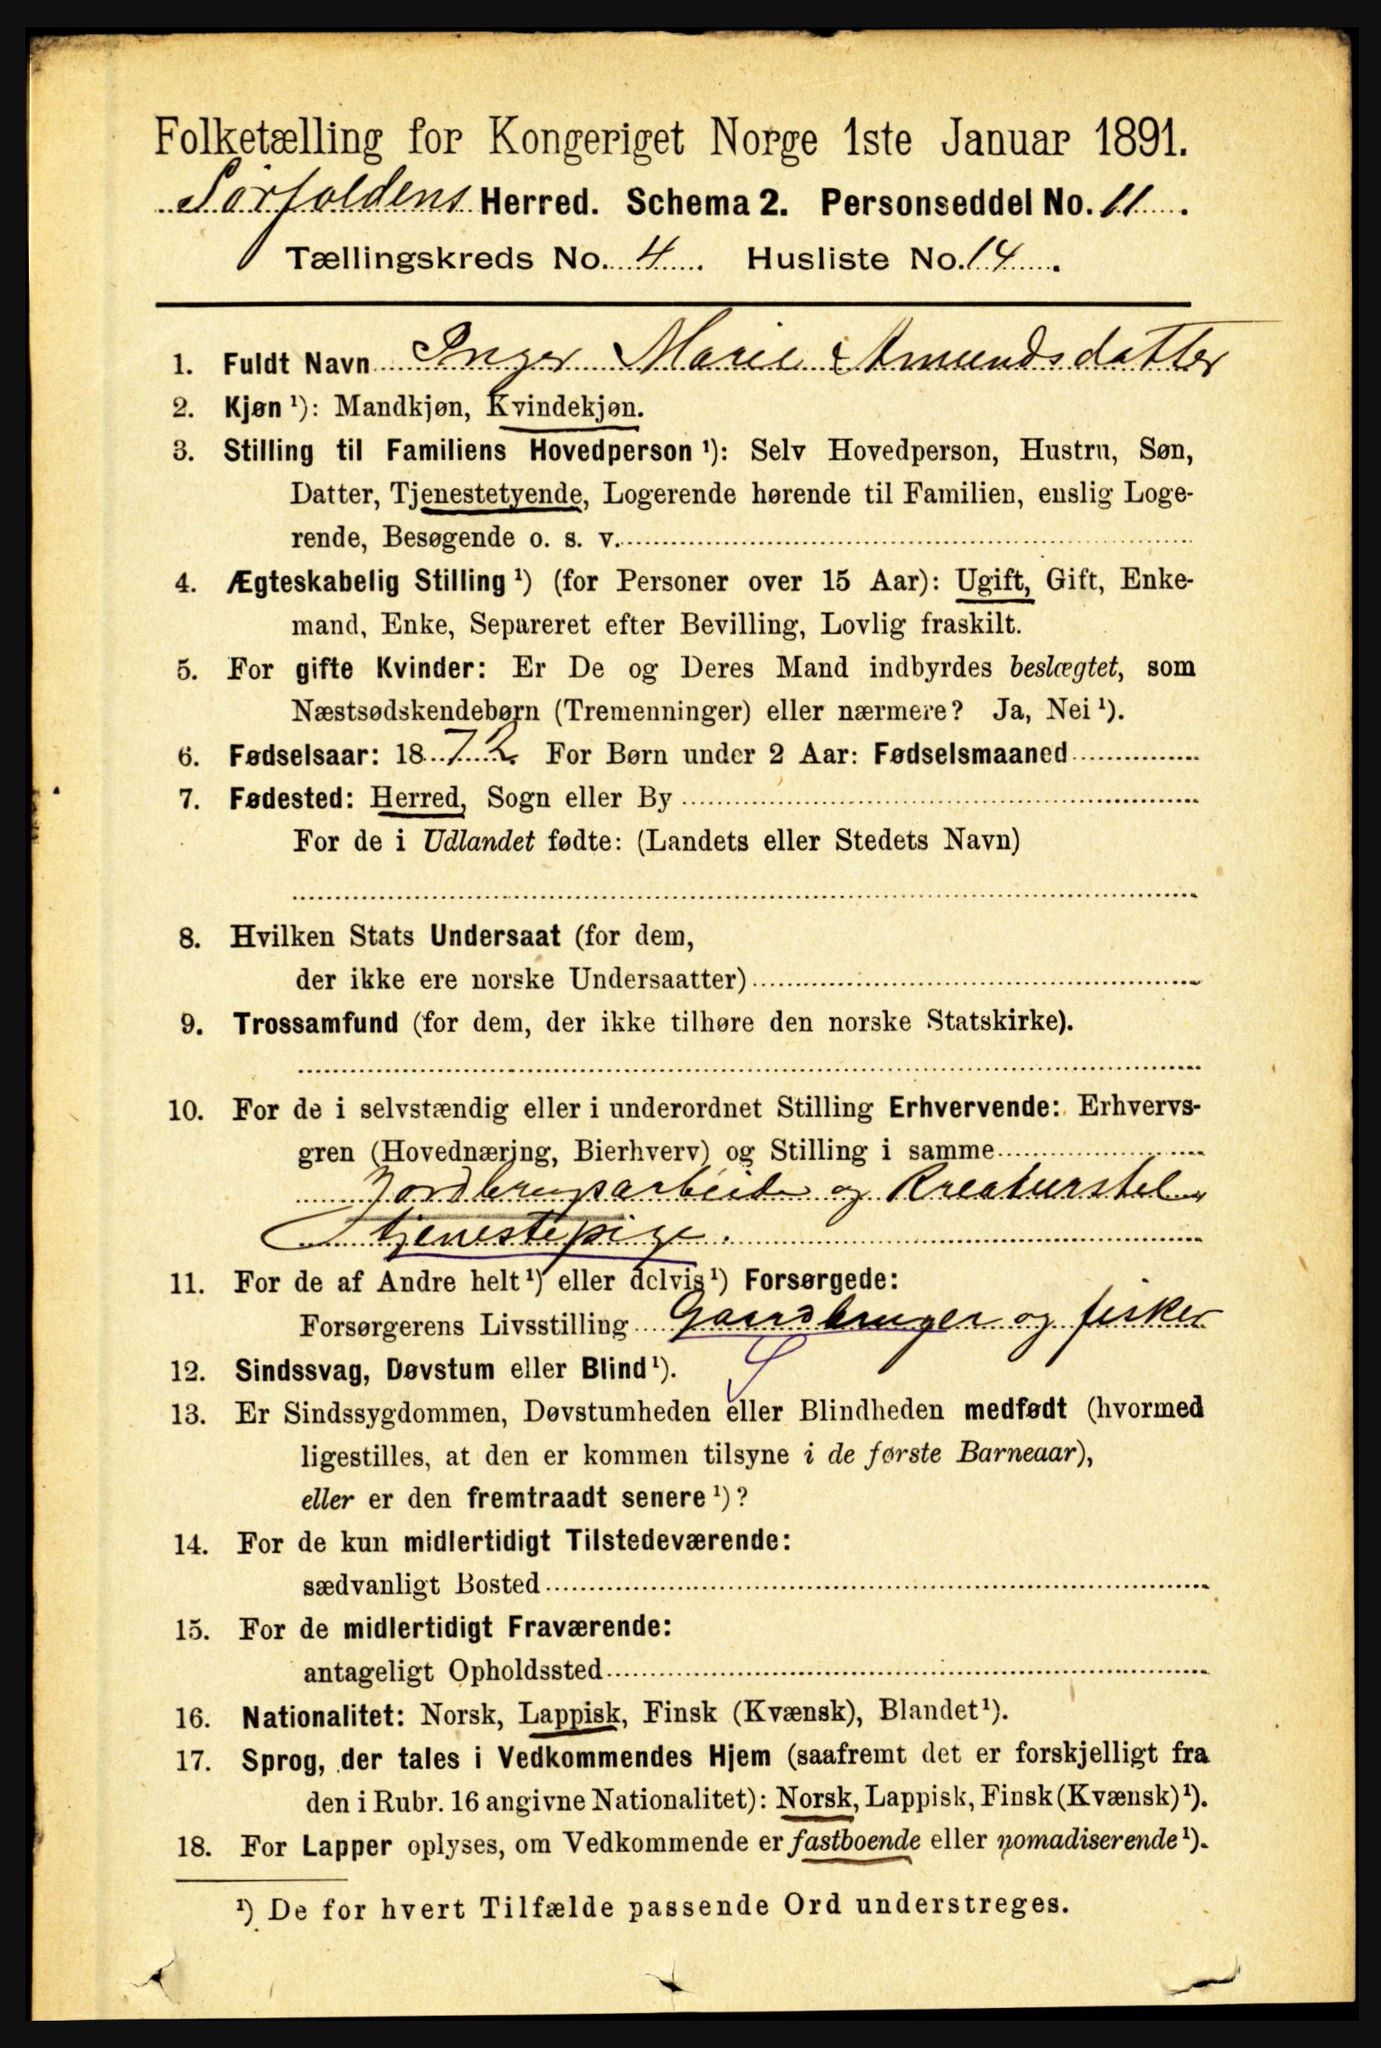 Folketælling for Kongeriget Norge 1ste Januar 1891.
Sørfoldens Herred. Schema 2. Personseddel No. 11.
Tællingskreds No. 4. Husliste No. 14.
1. Fuldt Navn Inger Marie Amundsdatter
2. Kjøn ¹): Mandkjøn, Kvindekjøn.
3. Stilling til Familiens Hovedperson ¹): Selv Hovedperson, Hustru, Søn,
Datter, Tjenestetyende, Logerende hørende til Familien, enslig Loge-
rende, Besøgende o. s. v.
4. Ægteskabelig Stilling ¹) (for Personer over 15 Aar): Ugift, Gift, Enke-
mand, Enke, Separeret efter Bevilling, Lovlig fraskilt.
5. For gifte Kvinder: Er De og Deres Mand indbyrdes beslægtet, som
Næstsødskendebørn (Tremenninger) eller nærmere? Ja, Nei ¹).
6. Fødselsaar: 1872. For Børn under 2 Aar: Fødselsmaaned
7. Fødested: Herred, Sogn eller By
For de i Udlandet fødte: (Landets eller Stedets Navn)
8. Hvilken Stats Undersaat (for dem,
der ikke ere norske Undersaatter)
9. Trossamfund (for dem, der ikke tilhøre den norske Statskirke).
10. For de i selvstændig eller i underordnet Stilling Erhvervende: Erhvervs-
gren (Hovednæring, Bierhverv) og Stilling i samme
Jordbrugsarbeide og Kreaturstel
tjenestepige.
11. For de af Andre helt ¹) eller delvis ¹) Forsørgede:
Forsørgerens Livsstilling Gaardbruger og fisker
12. Sindssvag, Døvstum eller Blind ¹).
13. Er Sindssygdommen, Døvstumheden eller Blindheden medfødt (hvormed
ligestilles, at den er kommen tilsyne i de første Barneaar),
eller er den fremtraadt senere ¹)?
14. For de kun midlertidigt Tilstedeværende:
sædvanligt Bosted
15. For de midlertidigt Fraværende:
antageligt Opholdssted
16. Nationalitet: Norsk, Lappisk, Finsk (Kvænsk), Blandet ¹).
17. Sprog, der tales i Vedkommendes Hjem (saafremt det er forskjelligt fra
den i Rubr. 16 angivne Nationalitet): Norsk, Lappisk, Finsk (Kvænsk) ¹).
18. For Lapper oplyses, om Vedkommende er fastboende eller nomadiserende ¹).
¹) De for hvert Tilfælde passende Ord understreges.